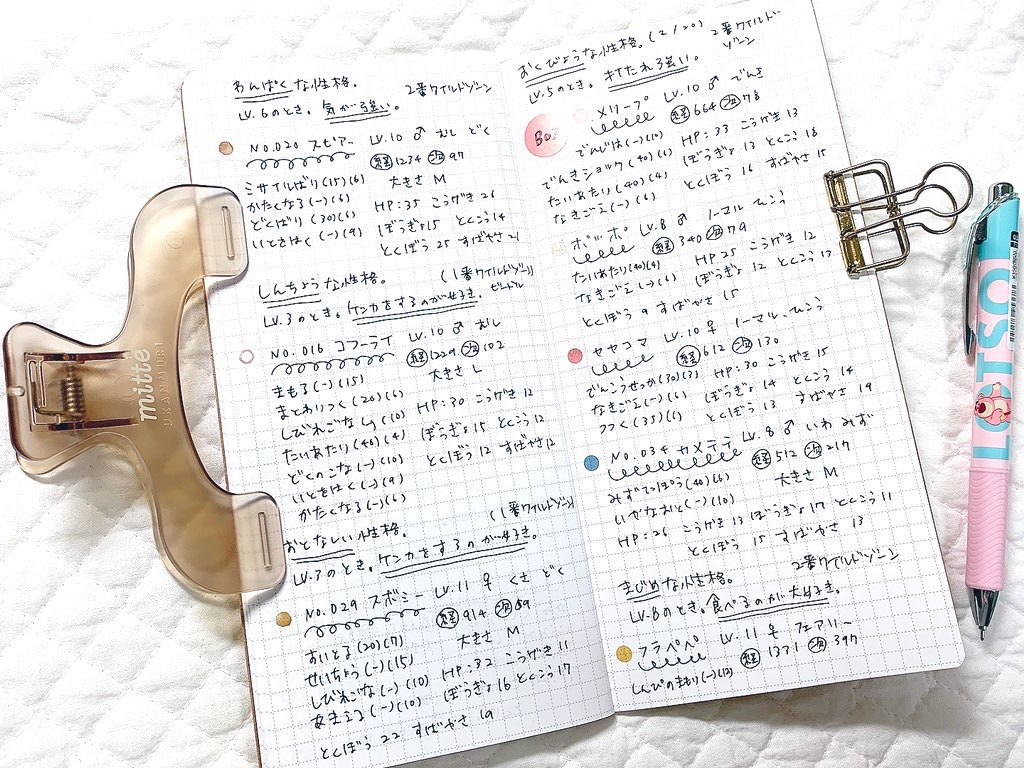 わんぱくな性格。
2番ワイルドゾーン
LV.6のとき。気が強い。
No.020 スピアー LV.10 ♂ むし どく
経1234 次97
ミサイルばり(15)(6) 大きさ M
かたくなる(-)(6) HP:35 こうげき 26
どくばり(30)(6) ぼうぎょ15 とくこう14
いときはく(-)(9) とくぼう 25 すばやさ 21
しんちょうな性格。 (1番ワイルドゾーン)
LV.3のとき。ケンカをするのが好き。 ビードル
No.016 コフーライ LV.10 ♂ むし
経1229 次102
まもる(-)(15) 大きさ L
まとわりつく(20)(6)
しびれごな(-)(10) HP:30 こうげき 12
たいあたり(40)(4) ぼうぎょ 15 とくこう 12
どくのこな(-)(10) とくぼう 12 すばやさ 12
いときはく(-)(9)
かたくなる(-)(6)
おとなしい性格。 (1番ワイルドゾーン)
LV.3のとき。ケンカをするのが好き。
No.029 スボミー LV.11 ♀ くさ どく
経914 次59
すいとる(20)(7) 大きさ M
せいちょう(-)(15)
しびれごな(-)(10) HP:32 こうげき 11
(-)(10) ぼうぎょ 16 とくこう 17
とくぼう 22 すばやさ 19
おくびょうな性格。(2/20) 2番ワイルドゾーン
LV.5のとき。打たれ強い。
Box
メリープ LV.10 ♂ でんき
経664 次78
でんじは(-)(10) HP:33 こうげき 13
でんきショック(40)(6) ぼうぎょ 13 とくこう 18
たいあたり(40)(4) とくぼう 16 すばやさ 15
なきごえ(-)(6)
ポッポ LV.8 ♂ ノーマル ひこう
経340 次79
たいあたり(40)(4) HP 25 こうげき 12
なきごえ(-)(6) ぼうぎょ 12 とくこう 12
とくぼう 9 すばやさ 15
ヤヤコマ LV.10 ♀ ノーマル ひこう
経612 次130
でんこうせっか(30)(3) HP:30 こうげき 15
なきごえ(-)(6) ぼうぎょ 14 とくこう 14
つつく(35)(6) とくぼう 13 すばやさ 19
No.034 カメテテ LV.8 ♂ いわ みず
経512 次217
みずでっぽう(40)(6) 大きさ M
いやなおと(-)(10)
HP:26 こうげき 13 ぼうぎょ 17 とくこう 11
とくぼう 15 すばやさ 13
まじめな性格。 2番ワイルドゾーン
LV.8のとき。食べるのが大好き。
フラベベ LV.11 ♀ フェアリー
経1371 次397
しんぴのまもり(-)(12)
mitte
UKANMURI
LOTSO